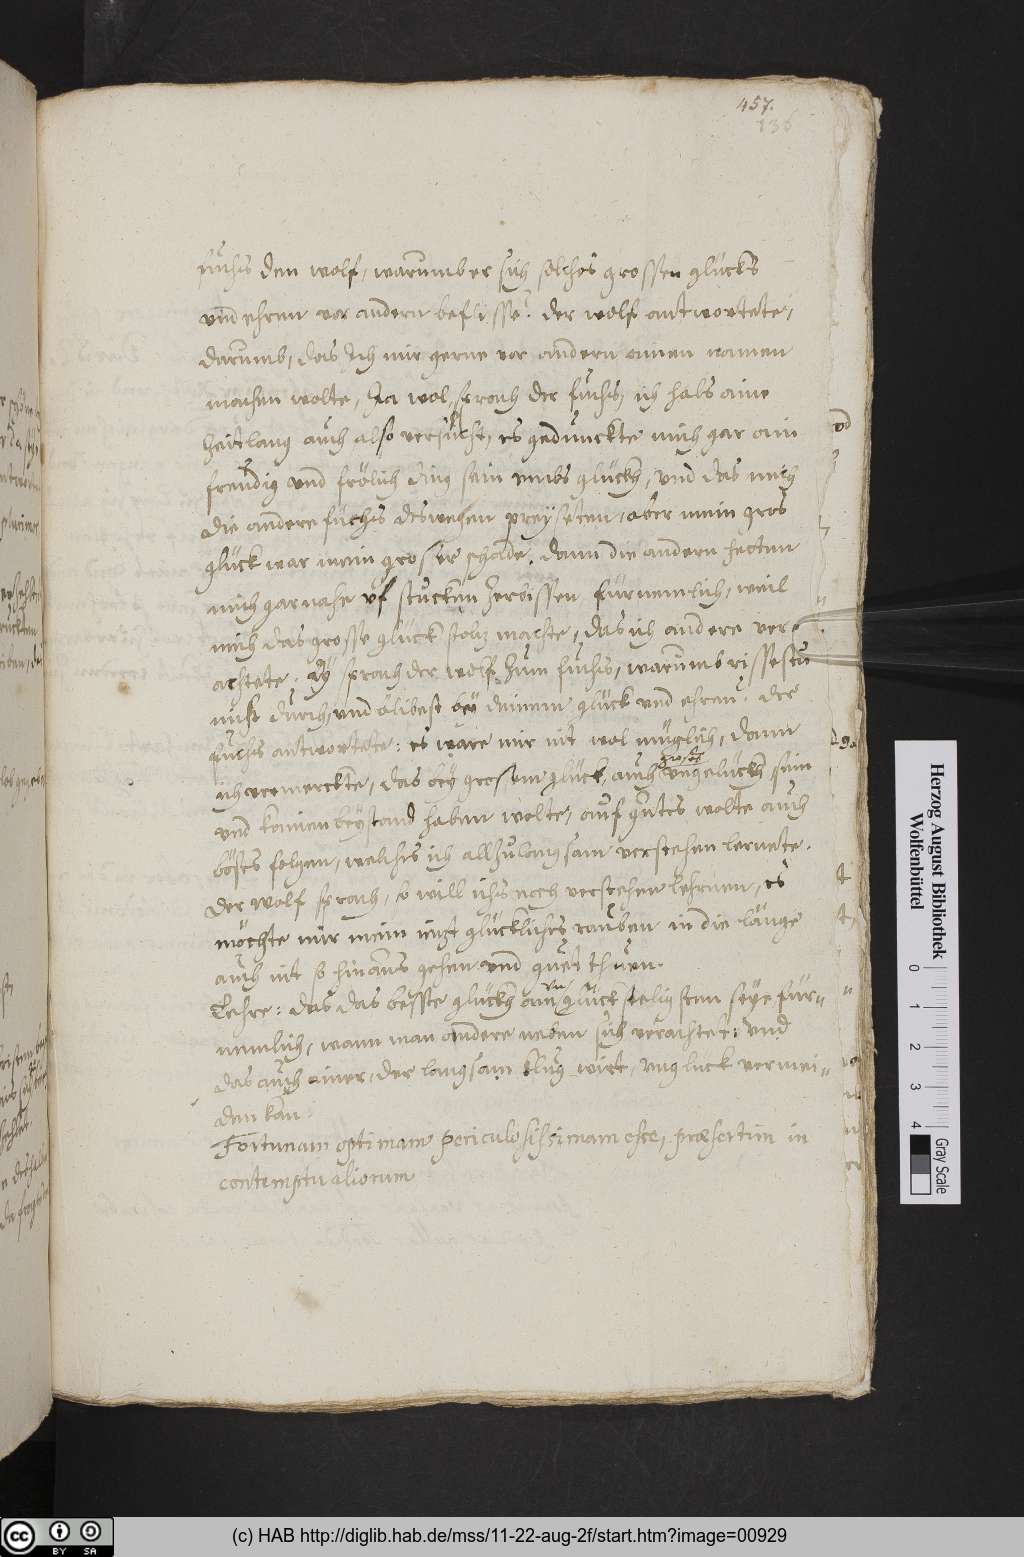 457.
136
fuchs den wolf, warumb er sich solches grossen glücks
und ehren vor andern beflisse? der wolf antwortete,
darumb, das ich mir gerne vor andern einen namen
machen wolte, Ja wol, sprach der fuchs, ich habs eine
Zeitlang auch also versucht, es gedunckte mich gar ein
freudig und frölich ding sein umbs glück, und das mich
die andere füchs deswegen preyseten, aber mein gros
glück war mein groser schade. dann die andern hetten
mich gar nahe uf stucken zerbissen fürnemlich, weil
mich das grosse glück stolz machte, das ich andere ver-
achtete. Ey sprach der wolf zum fuchs, warumb rissestu
nicht durch, und blibest bey deinem glück und ehren? der
fuchs antwortete: es ware mir nit wol müglich, dann
ich vermerckte, das bey grosem glück, auch ungelück sein
und keinen beystand haben wolte, auf gutes wolte auch
böses folgen, welches ich allzulangsam verstehen lernete.
der wolf sprach, so will ichs noch verstehen lehrnen, es
möchte mir mein iezt glückliches rauben in die länge
auch nit so hinaus gehen und guet thuen.
Lehre: das das beste glück am glückseligsten seye für-
nemlich, wann man andere neben sich verachtet: und
das auch einer, der langsam klug wirt, ungluck vermei-
den kan.
Fortunam optimam periculosissimam esse, præsertim in
contemptu aliorum
Herzog August Bibliothek
Wolfenbüttel
0 1 2 3 4
Gray Scale
cc BY SA
(c) HAB http://diglib.hab.de/mss/11-22-aug-2f/start.htm?image=00929